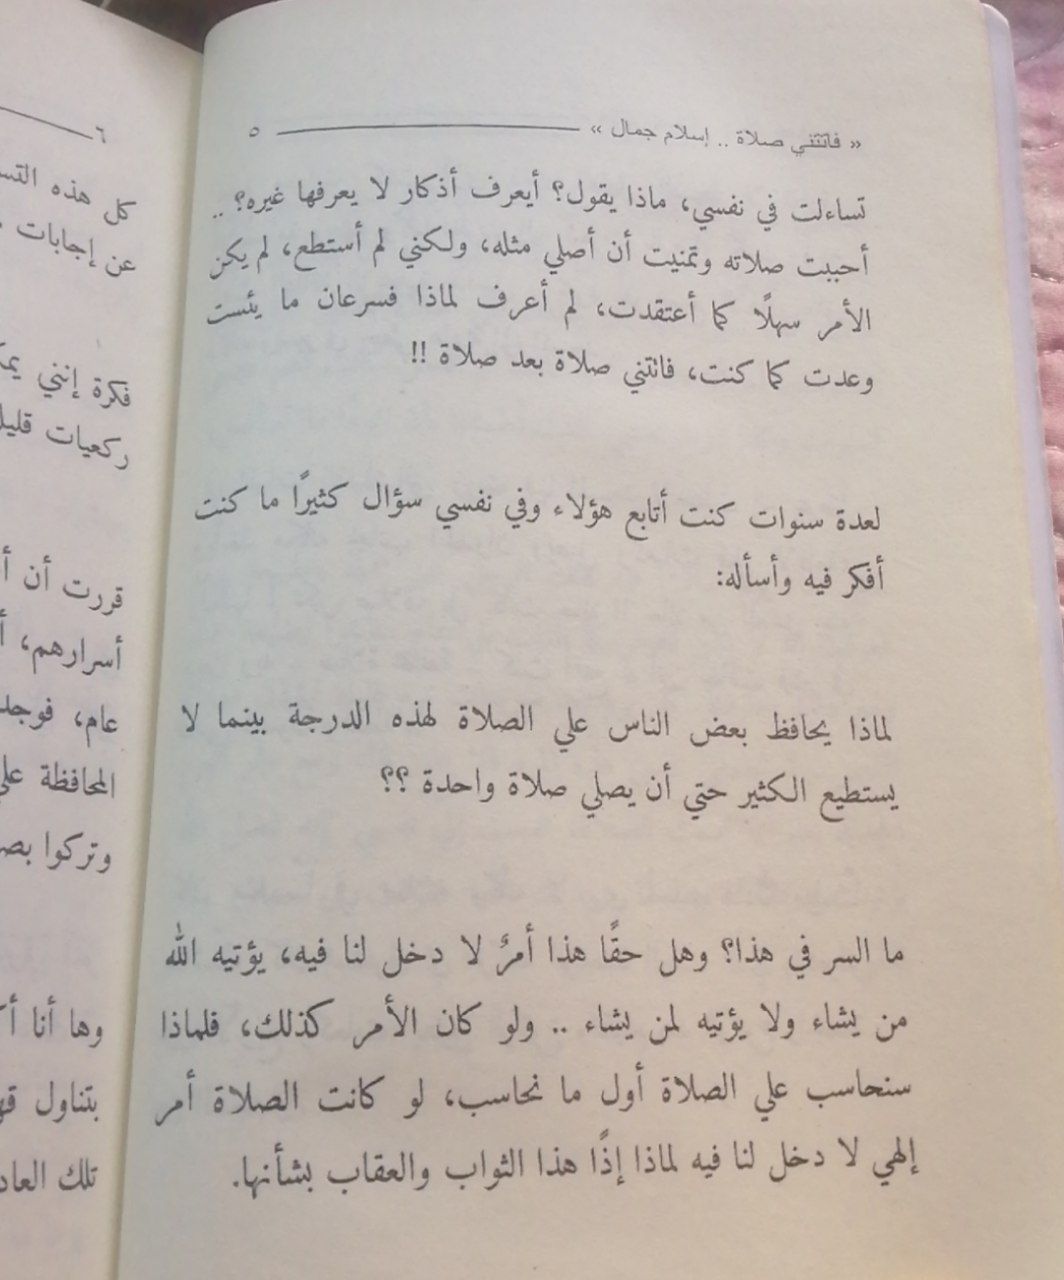 « فاتتني صلاة .. إسلام جمال » ٥
تساءلت في نفسي، ماذا يقول؟ أيعرف أذكار لا يعرفها غيره؟ ..
أحببت صلاته وتمنيت أن أصلي مثله، ولكني لم أستطع، لم يكن
الأمر سهلًا كما أعتقدت، لم أعرف لماذا فسرعان ما يئست
وعدت كما كنت، فاتتني صلاة بعد صلاة !!
لعدة سنوات كنت أتابع هؤلاء وفي نفسي سؤال كثيرًا ما كنت
أفكر فيه وأسأله:
لماذا يحافظ بعض الناس علي الصلاة لهذه الدرجة بينما لا
يستطيع الكثير حتي أن يصلي صلاة واحدة ؟؟
ما السر في هذا؟ وهل حقًا هذا أمرٌ لا دخل لنا فيه، يؤتيه الله
من يشاء ولا يؤتيه لمن يشاء .. ولو كان الأمر كذلك، فلماذا
سنحاسب علي الصلاة أول ما نحاسب، لو كانت الصلاة أمر
إلهي لا دخل لنا فيه لماذا إذًا هذا الثواب والعقاب بشأنها.
٦
كل هذه
عن إجابات
فكرة إنني
ركعيات
قررت أن
أسرارهم،
عام،
المحافظة
وتركوا
وها أنا
بتناول
تلك